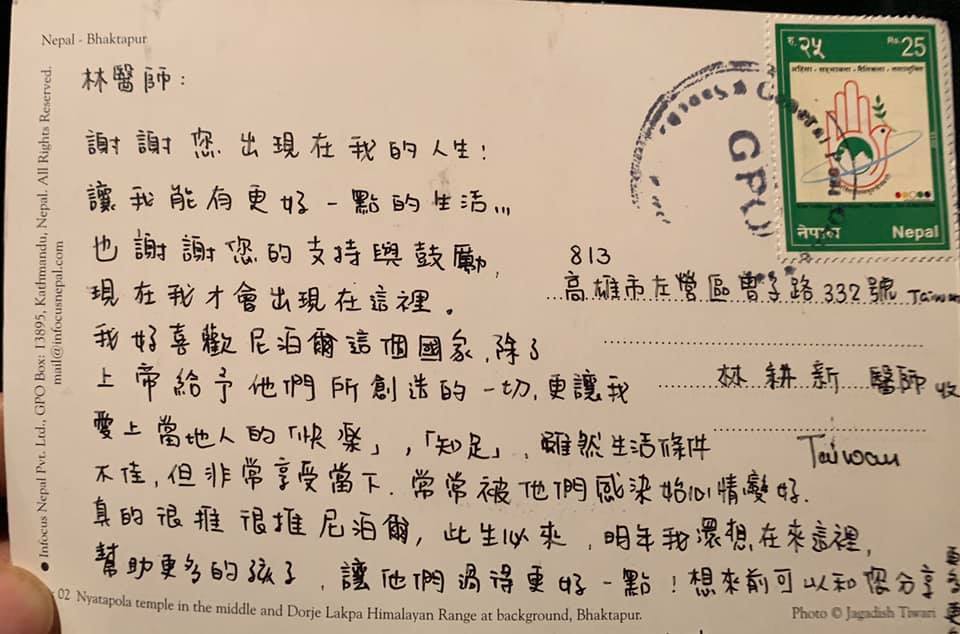 Nepal - Bhaktapur
林醫師:
謝謝您出現在我的人生!
讓我能有更好一點的生活,,,
也謝謝您的支持與鼓勵,
現在我才會出現在這裡。
我好喜歡尼泊爾這個國家,除了
上帝給予他們所創造的一切,更讓我
愛上當地人的「快樂」,「知足」,雖然生活條件
不佳,但非常享受當下.常常被他們感染始心情變好.
真的很推很推尼泊爾,此生必來,明年我還想在來這裡,
幫助更多的孩子,讓他們過得更好一點!想來前可以和您分享
02 Nyatapola temple in the middle and Dorje Lakpa Himalayan Range at background, Bhaktapur.
Photo © Jagadish Tiwari
Infocus Nepal Pvt. Ltd., GPO Box: 13895, Kathmandu, Nepal. All Rights Reserved.
mail@infocusnepal.com
रु.२५
Rs.25
नेपाल
Nepal
GPO
813
高雄市左營區曾子路332號 Taiwan
林耕新 醫師 收
Taiwan